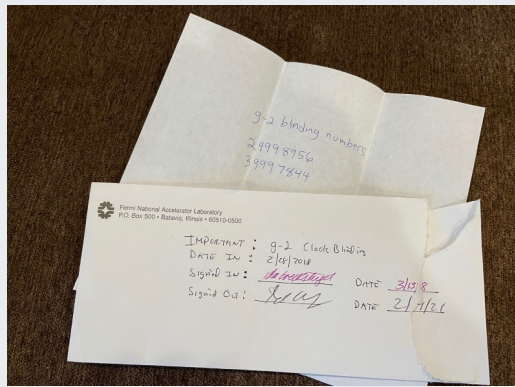 g-2 blinding numbers
29998956
39997844
Fermi National Accelerator Laboratory
P.O. Box 500 • Batavia, Illinois • 60510-0500
IMPORTANT : g-2 Clock Blinding
DATE IN : 2/28/2018
Signed In : DATE 3/13/8
Signed Out : DATE